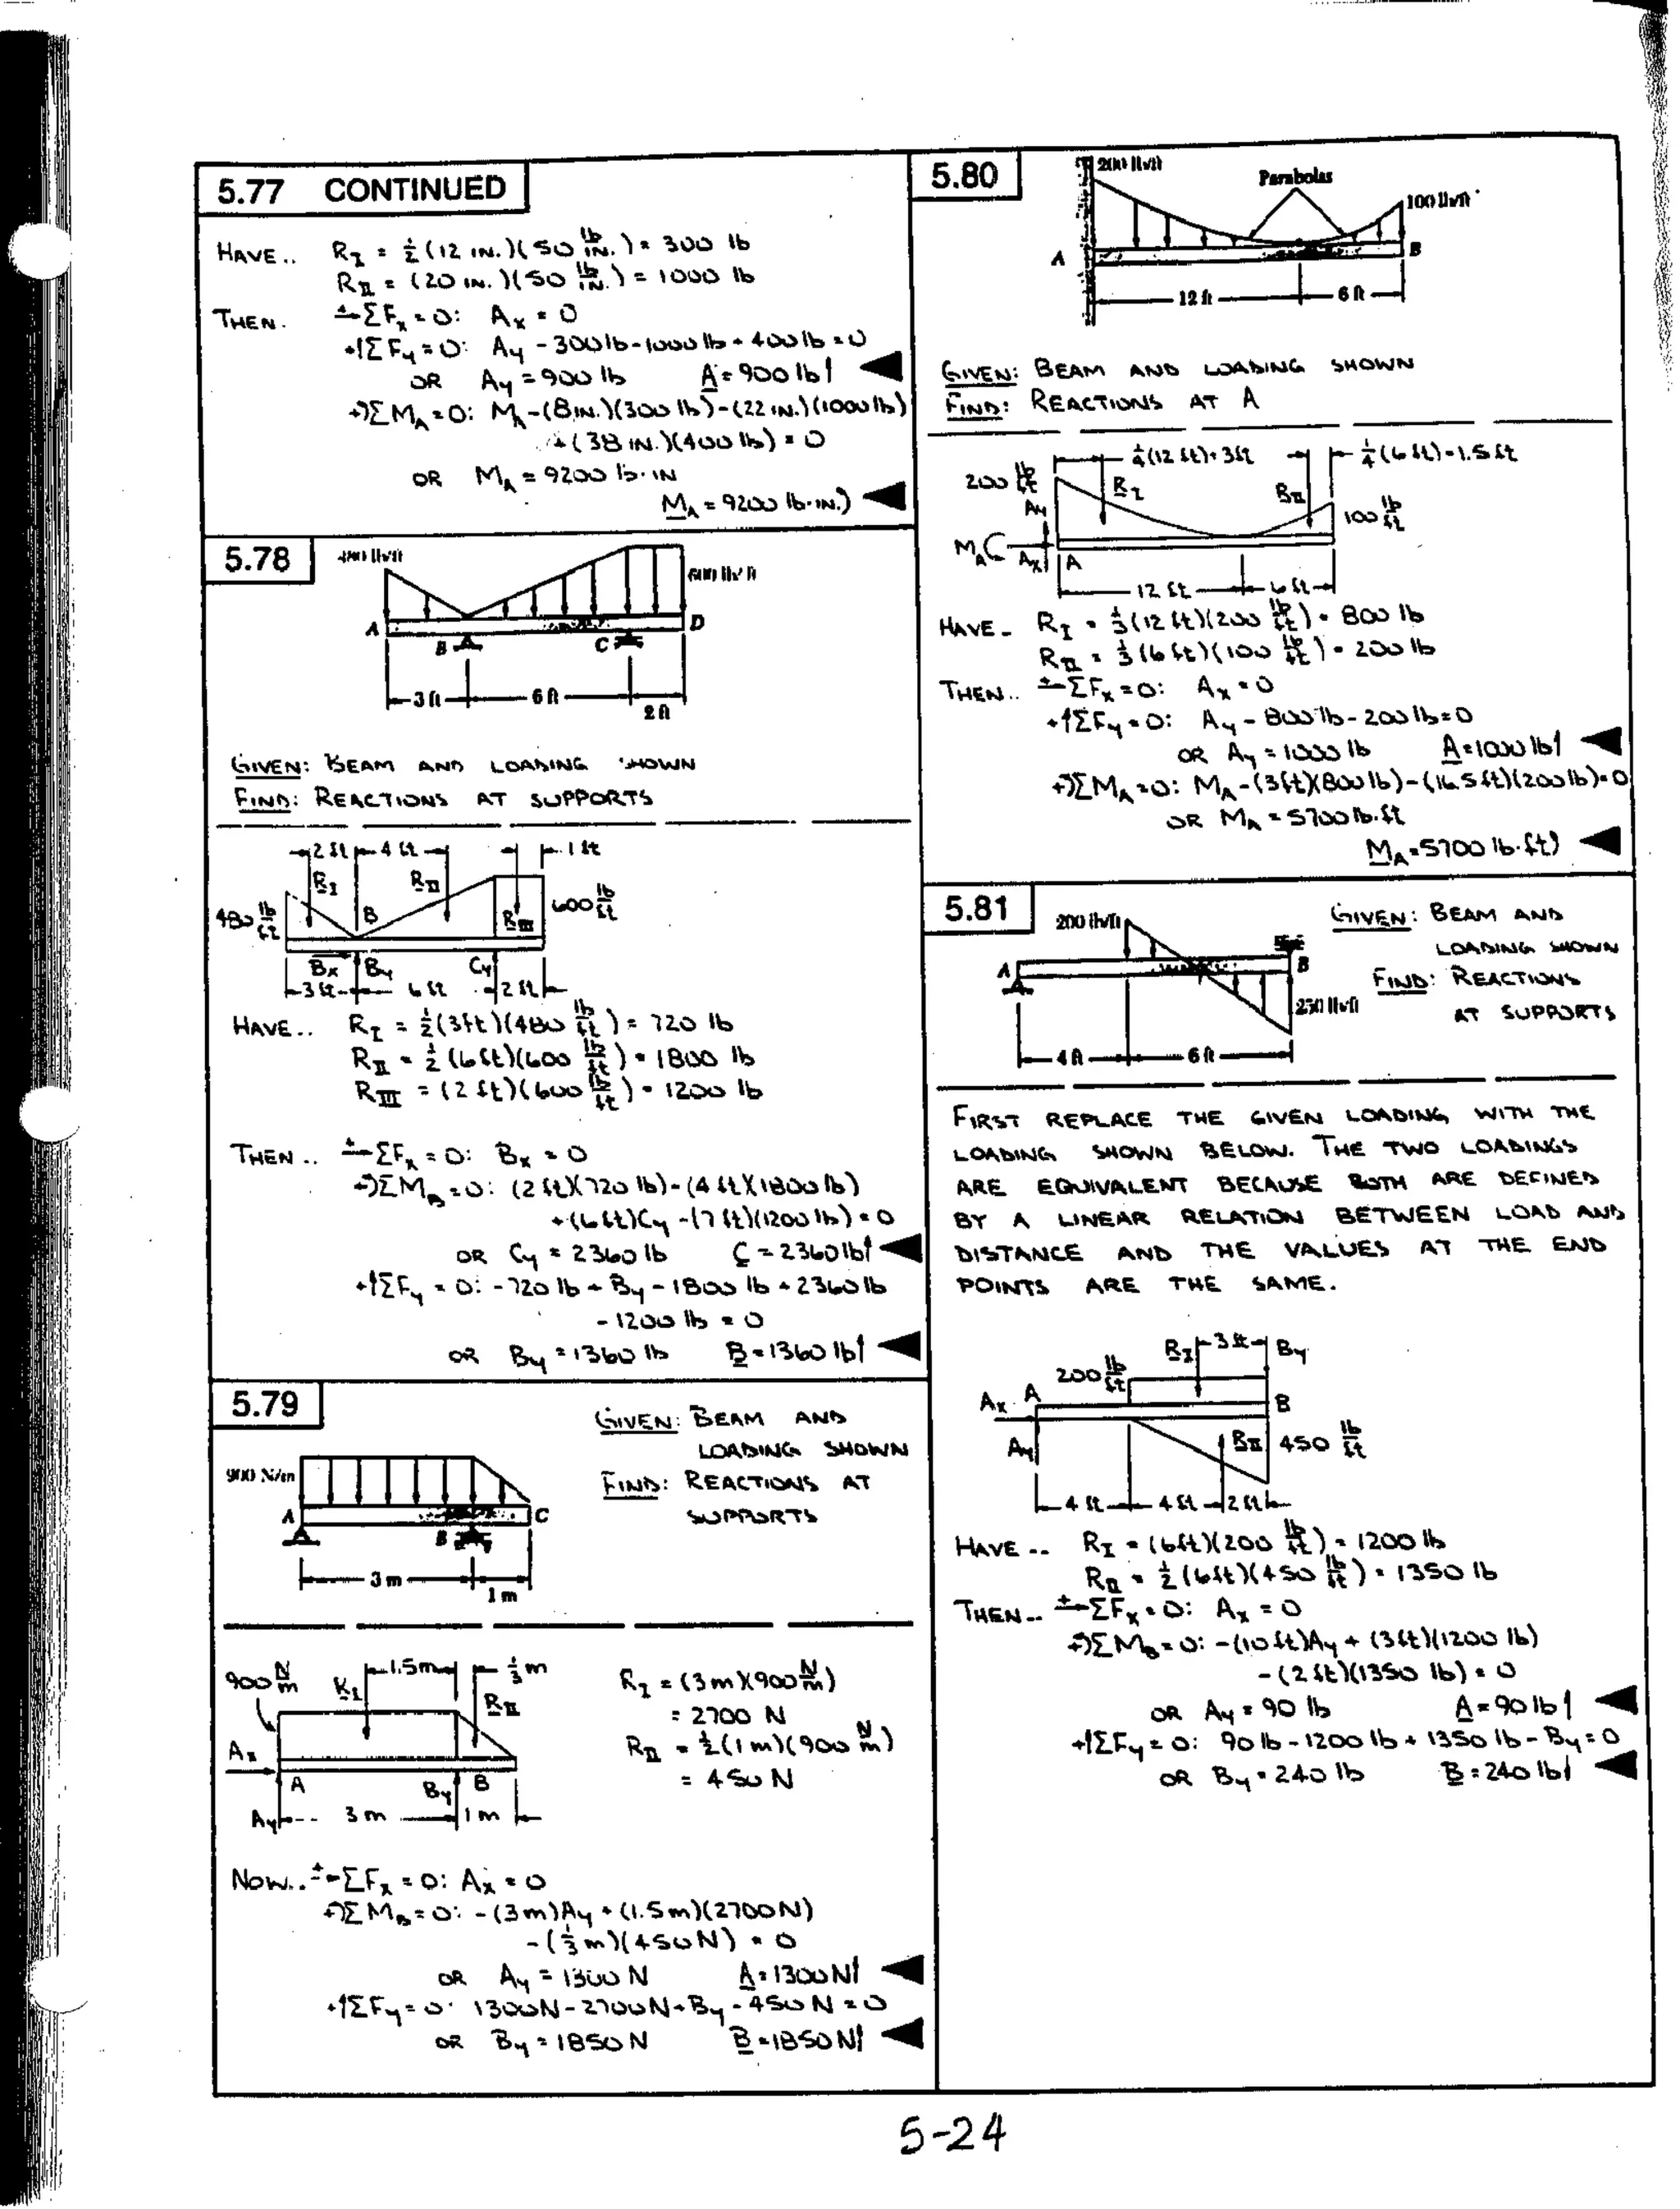 5.77 CONTINUED
HAVE.. R_I = 1/2 (12 IN.)(50 lb/IN.) = 300 lb
R_II = (20 IN.)(50 lb/IN.) = 1000 lb
THEN. ΣF_x = 0: A_x = 0
+↑ΣF_y = 0: A_y - 300 lb - 1000 lb + 400 lb = 0
OR A_y = 900 lb A = 900 lb↑ ◄
+↶ΣM_A = 0: M_A - (8 IN.)(300 lb) - (22 IN.)(1000 lb)
+ (38 IN.)(400 lb) = 0
OR M_A = 9200 lb·IN
M_A = 9200 lb·IN.↶ ◄
5.78
480 lb/ft
600 lb/ft
A B C D
3 ft 6 ft
2 ft
GIVEN: BEAM AND LOADING SHOWN
FIND: REACTIONS AT SUPPORTS
2 ft 4 ft 1 ft
R_I R_II
480 lb/ft B R_III 600 lb/ft
B_x B_y C_y
3 ft 6 ft 2 ft
HAVE.. R_I = 1/2 (3 ft)(480 lb/ft) = 720 lb
R_II = 1/2 (6 ft)(600 lb/ft) = 1800 lb
R_III = (2 ft)(600 lb/ft) = 1200 lb
THEN.. ΣF_x = 0: B_x = 0
+↶ΣM_B = 0: (2 ft)(720 lb) - (4 ft)(1800 lb)
+ (6 ft)C_y - (7 ft)(1200 lb) = 0
OR C_y = 2360 lb C = 2360 lb↑ ◄
+↑ΣF_y = 0: -720 lb + B_y - 1800 lb + 2360 lb
- 1200 lb = 0
OR B_y = 1360 lb B = 1360 lb↑ ◄
5.79
GIVEN: BEAM AND
LOADING SHOWN
FIND: REACTIONS AT
SUPPORTS
900 N/m
A B C
3 m
1 m
900 N/m R_I 1.5 m 1/3 m
R_II
A_x
A B_y B
A_y 3 m 1 m
R_I = (3 m)(900 N/m)
= 2700 N
R_II = 1/2 (1 m)(900 N/m)
= 450 N
NOW.. ΣF_x = 0: A_x = 0
+↶ΣM_B = 0: -(3 m)A_y + (1.5 m)(2700 N)
- (1/3 m)(450 N) = 0
OR A_y = 1300 N A = 1300 N↑ ◄
+↑ΣF_y = 0: 1300 N - 2700 N + B_y - 450 N = 0
OR B_y = 1850 N B = 1850 N↑ ◄
5.80
200 lb/ft
Parabolas
100 lb/ft
A B
12 ft 6 ft
GIVEN: BEAM AND LOADING SHOWN
FIND: REACTIONS AT A
1/4 (12 ft) = 3 ft 1/4 (6 ft) = 1.5 ft
200 lb/ft R_I R_II
A_y 100 lb/ft
M_A A_x A
12 ft 6 ft
HAVE.. R_I = 1/3 (12 ft)(200 lb/ft) = 800 lb
R_II = 1/3 (6 ft)(100 lb/ft) = 200 lb
THEN.. ΣF_x = 0: A_x = 0
+↑ΣF_y = 0: A_y - 800 lb - 200 lb = 0
OR A_y = 1000 lb A = 1000 lb↑ ◄
+↶ΣM_A = 0: M_A - (3 ft)(800 lb) - (16.5 ft)(200 lb) = 0
OR M_A = 5700 lb·ft
M_A = 5700 lb·ft↶ ◄
5.81
GIVEN: BEAM AND
LOADING SHOWN
FIND: REACTIONS
AT SUPPORTS
200 lb/ft
A B
250 lb/ft
4 ft 6 ft
FIRST REPLACE THE GIVEN LOADING WITH THE
LOADING SHOWN BELOW. THE TWO LOADINGS
ARE EQUIVALENT BECAUSE BOTH ARE DEFINED
BY A LINEAR RELATION BETWEEN LOAD AND
DISTANCE AND THE VALUES AT THE END
POINTS ARE THE SAME.
R_I 3 ft B_y
200 lb/ft
A_x A B
A_y R_II 450 lb/ft
4 ft 4 ft 2 ft
HAVE -- R_I = (6 ft)(200 lb/ft) = 1200 lb
R_II = 1/2 (6 ft)(450 lb/ft) = 1350 lb
THEN -- ΣF_x = 0: A_x = 0
+↶ΣM_B = 0: -(10 ft)A_y + (3 ft)(1200 lb)
- (2 ft)(1350 lb) = 0
OR A_y = 90 lb A = 90 lb↑ ◄
+↑ΣF_y = 0: 90 lb - 1200 lb + 1350 lb - B_y = 0
OR B_y = 240 lb B = 240 lb↓ ◄
5-24